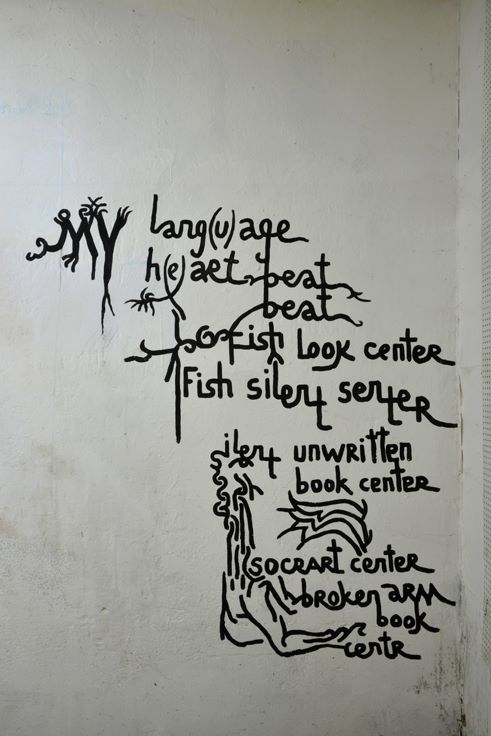 MY lang(u)age
h(e)art beat
beat
fish Look center
Fish silent senter
silent unwritten
book center
SOCRART center
broken ARM
book
centr